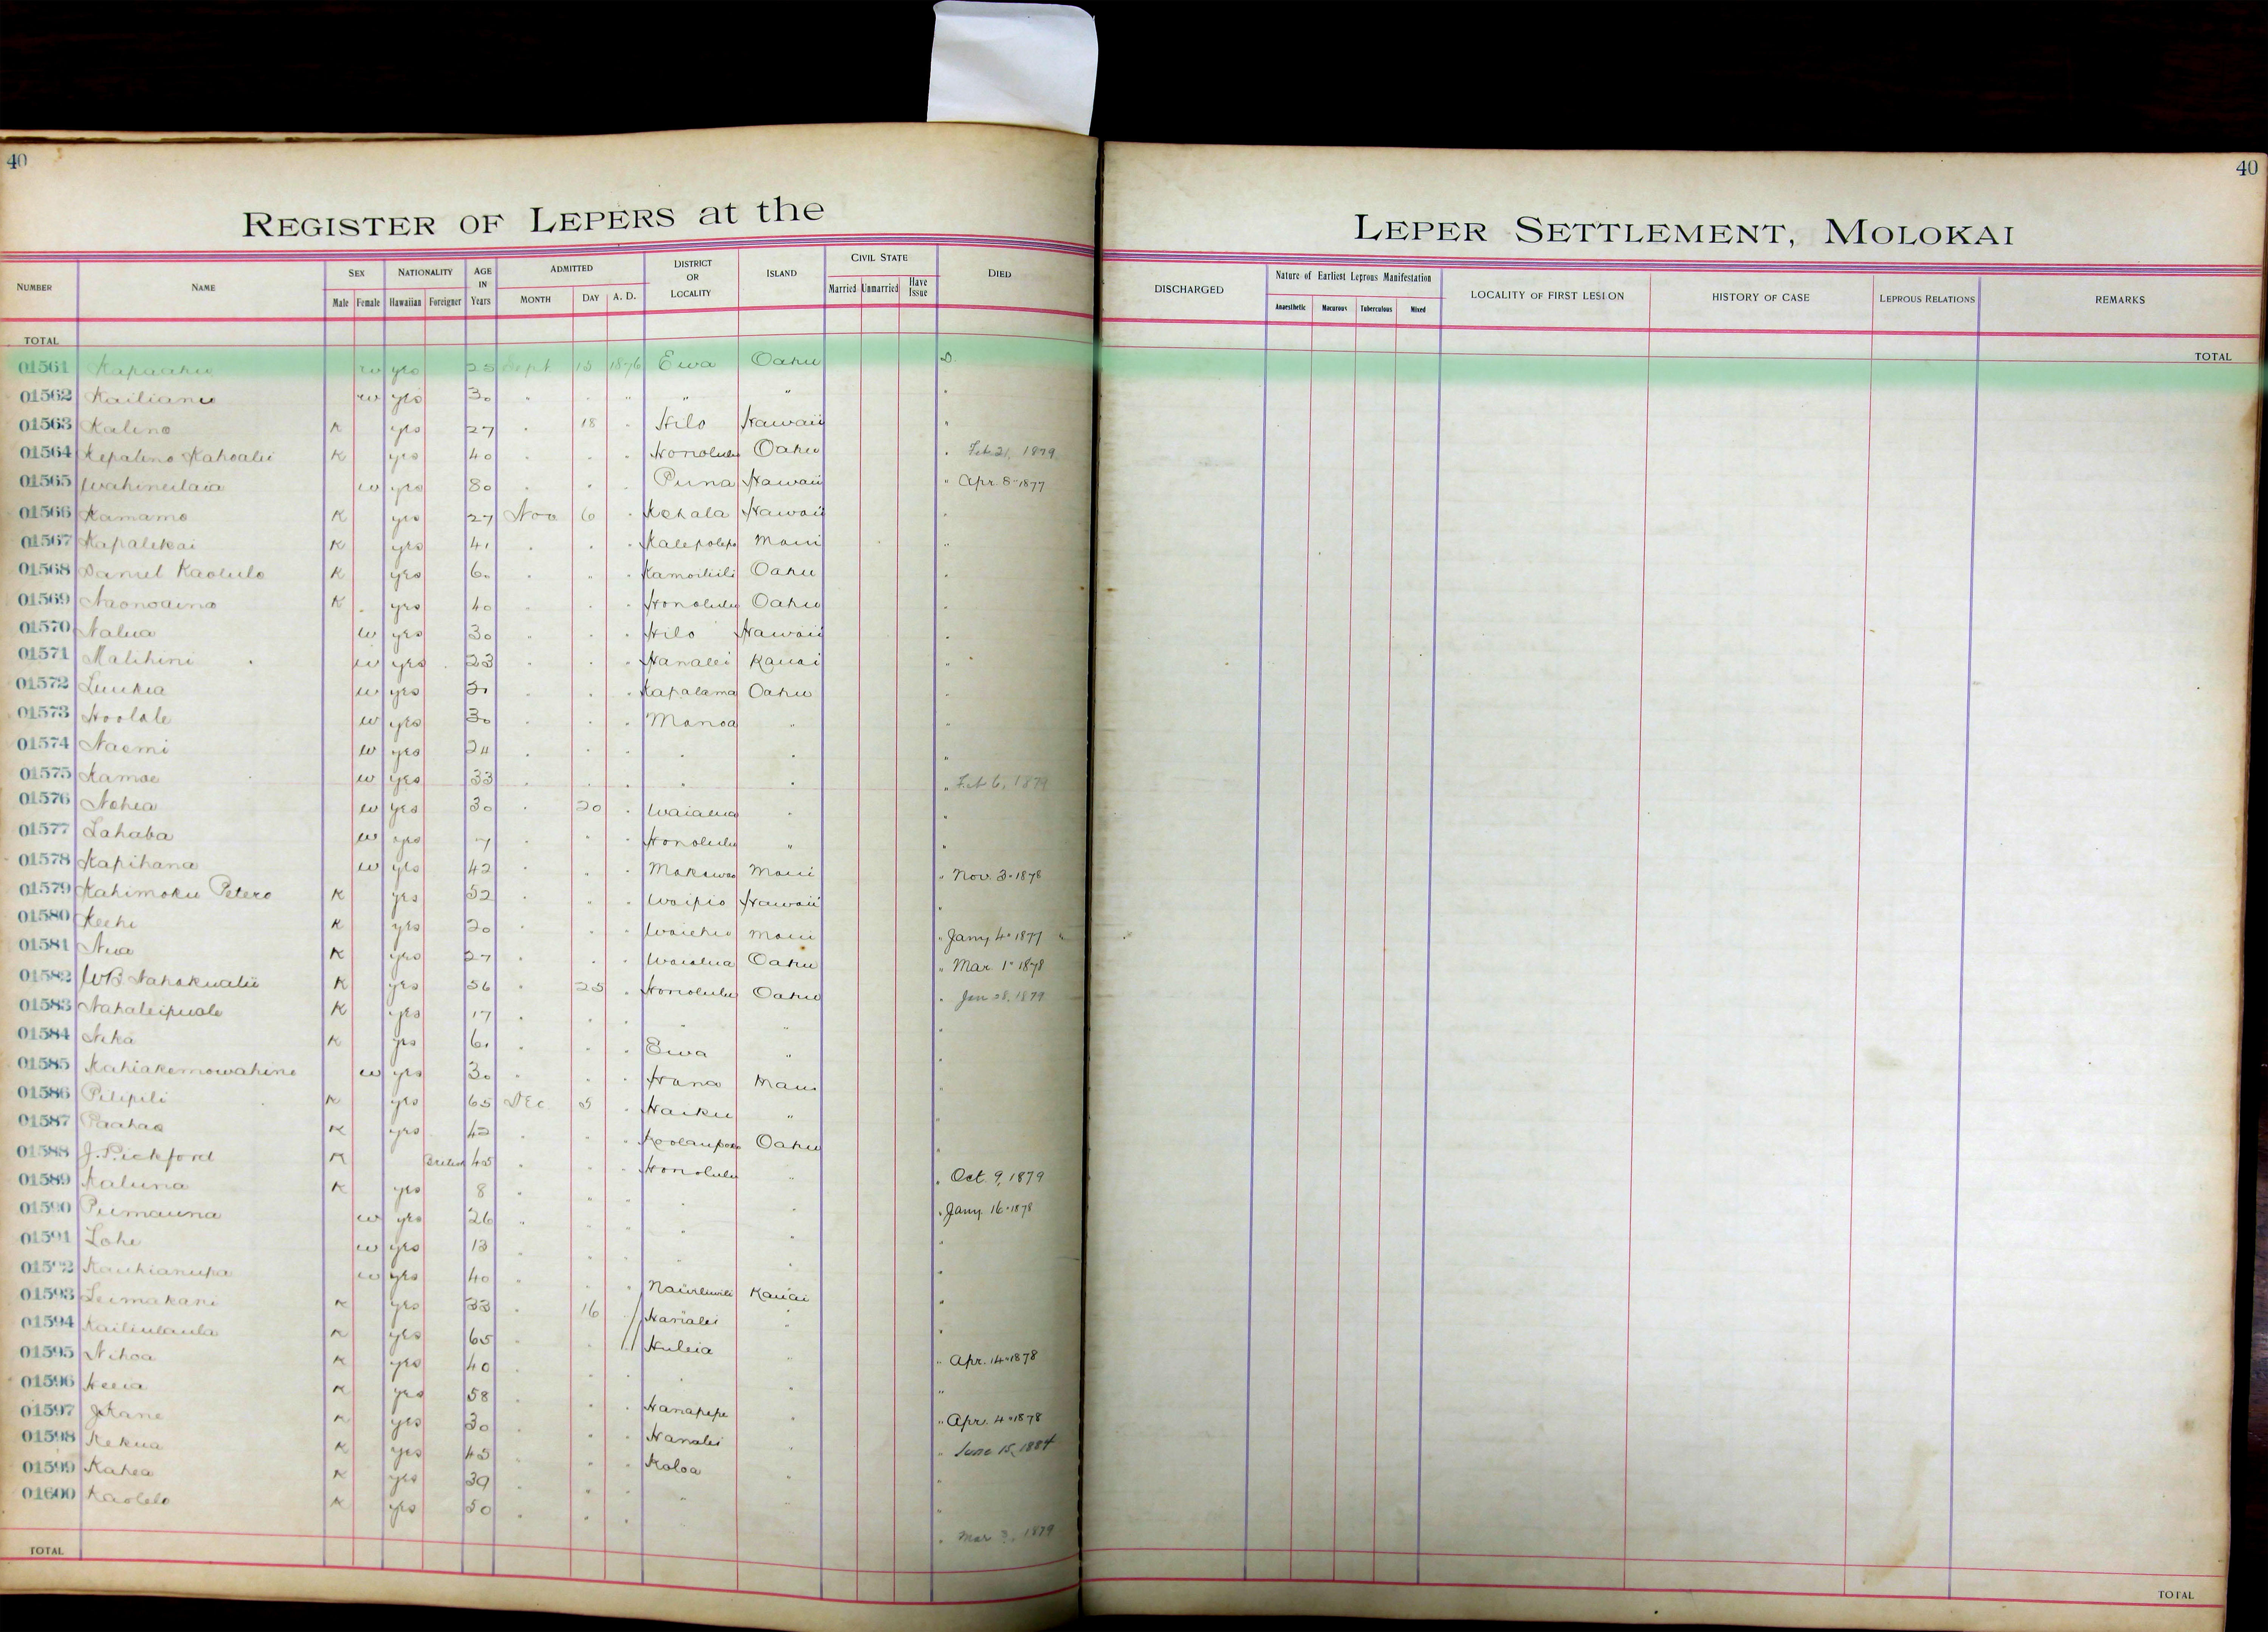 40
40
REGISTER OF LEPERS at the
LEPER SETTLEMENT, MOLOKAI
NUMBER NAME SEX Male Female NATIONALITY Hawaiian Foreigner AGE IN Years ADMITTED MONTH DAY A. D. DISTRICT OR LOCALITY ISLAND CIVIL STATE Married Unmarried Have Issue DIED DISCHARGED Nature of Earliest Leprous Manifestation Anaesthetic Macurous Tuberculous Mixed LOCALITY OF FIRST LESION HISTORY OF CASE LEPROUS RELATIONS REMARKS
TOTAL TOTAL
01561 Kapaahu w yes 25 Sept 15 1876 Ewa Oahu D.
01562 Kailianu w yes 30 " " " " " "
01563 Kalino K yes 27 " 18 " Hilo Hawaii "
01564 Kepalino Kahoalii K yes 40 " " " Honolulu Oahu " Feb 21, 1879
01565 Wahineilaia w yes 80 " " " Puna Hawaii " Apr. 8-1877
01566 Kamamo K yes 27 Nov 6 " Kohala Hawaii "
01567 Kapalekai K yes 41 " " " Kalepolepo Maui "
01568 Daniel Kaolulo K yes 60 " " " Kamoiliili Oahu "
01569 Naonoaina K yes 40 " " " Honolulu Oahu "
01570 Nalua w yes 30 " " " Hilo Hawaii "
01571 Malihini w yes 23 " " " Hanalei Kauai "
01572 Luukia w yes 21 " " " Kapalama Oahu "
01573 Hoolale w yes 30 " " " Manoa " "
01574 Naomi w yes 24 " " " " " "
01575 Kamae w yes 33 " " " " " " Feb 6, 1879
01576 Nohea w yes 30 " 20 " Waialua " "
01577 Lahaba w yes 7 " " " Honolulu " "
01578 Kapihana w yes 42 " " " Makawao Maui " Nov. 3-1878
01579 Kahimoku Petero K yes 52 " " " Waipio Hawaii "
01580 Keehi K yes 20 " " " Waiehu Maui " Jany 4-1877 "
01581 Niua K yes 27 " " " Waialua Oahu " Mar. 1-1878
01582 WB Nahokualii K yes 56 " 25 " Honolulu Oahu " Jan 28, 1879
01583 Nahaleipuole K yes 17 " " " " " "
01584 Nika K yes 61 " " " Ewa " "
01585 Kahiakemowahine w yes 30 " " " Hana Maui "
01586 Pilipili K yes 65 Dec 5 " Haiku " "
01587 Paahao K yes 42 " " " Koolaupoko Oahu "
01588 J. Pickford K British 45 " " " Honolulu " " Oct. 9, 1879
01589 Kaluna K yes 8 " " " " " " Jany 16-1878
01590 Piimauna w yes 26 " " " " " "
01591 Lohe w yes 13 " " " " " "
01592 Kauhianupa w yes 40 " " " Nawiliwili Kauai "
01593 Leimakani K yes 33 " 16 " Hanalei " "
01594 Kailiulaula K yes 65 " " " Huleia " " Apr. 14-1878
01595 Nihoa K yes 40 " " " " " "
01596 Heeia K yes 58 " " " Hanapepe " " Apr. 4-1878
01597 J Kane K yes 30 " " " Hanalei " " June 15, 1884
01598 Kekua K yes 45 " " " Koloa " "
01599 Kahea K yes 39 " " " " " "
01600 Kaolelo K yes 50 " " " " Mar 3, 1879
TOTAL TOTAL